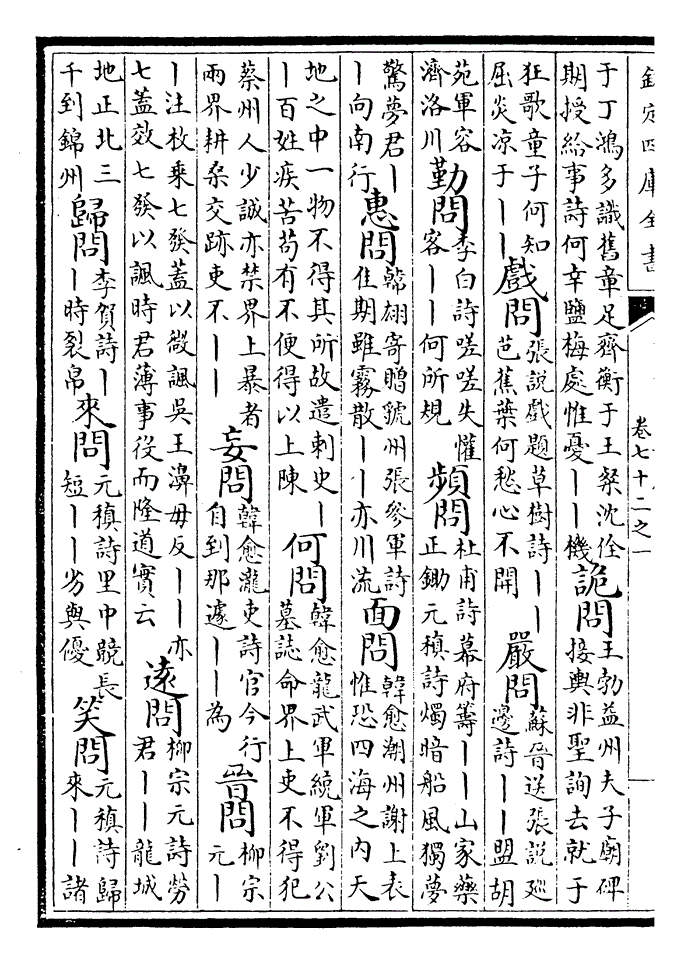 欽定四庫全書 卷七十二之一
于丁鴻多識舊章足齊衡于王粲沈佺期授給事詩何幸鹽梅處惟憂丨丨機詭問王勃益州夫子廟碑接輿非聖詢去就于
狂歌童子何知屈炎涼于丨丨戲問張説戲題草樹詩丨丨芭蕉葉何愁心不開嚴問蘇晉送張説廵邊詩丨丨盟胡
苑軍容濟洛川勤問李白詩嗟嗟失懽客丨丨何所規頻問杜甫詩幕府籌丨丨山家藥正鋤元稹詩燭暗船風獨夢
驚夢君丨丨向南行惠問韓翃寄贈虢州張參軍詩佳期雖霧散丨丨亦川流面問韓愈潮州謝上表惟恐四海之内天
地之中一物不得其所故遣刺史丨丨百姓疾苦苟有不便得以上陳何問韓愈龍武軍統軍劉公墓誌命界上吏不得犯
蔡州人少誠亦禁界上暴者兩界耕桑交跡吏不丨丨妄問韓愈瀧吏詩官今行自到那遽丨丨為晉問柳宗元丨
丨注枚乘七發葢以微諷吳王濞毋反丨丨亦七葢效七發以諷時君薄事役而隆道實云遠問柳宗元詩勞君丨丨龍城
地正北三千到錦州歸問李賀詩丨丨時裂帛來問元稹詩里中競長短丨丨劣與優笑問元稹詩歸來丨丨諸